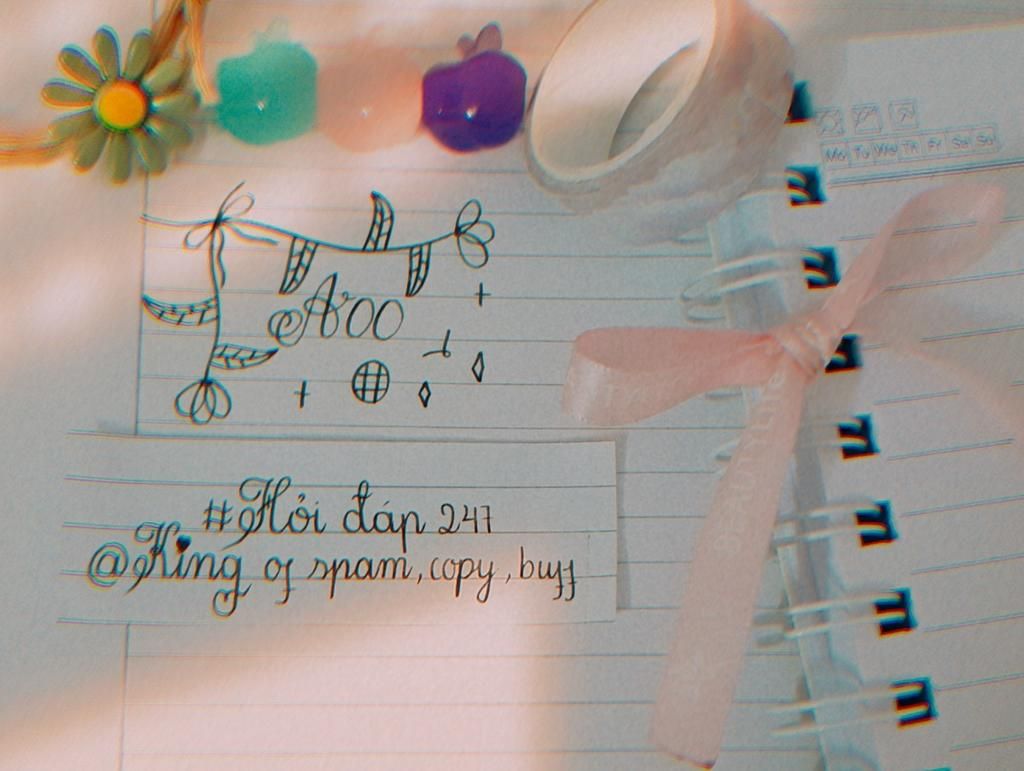 Mo Tu We Th Fr Sa Su
Aoo
#Hỏi đáp 247
@King of spam, copy, buff